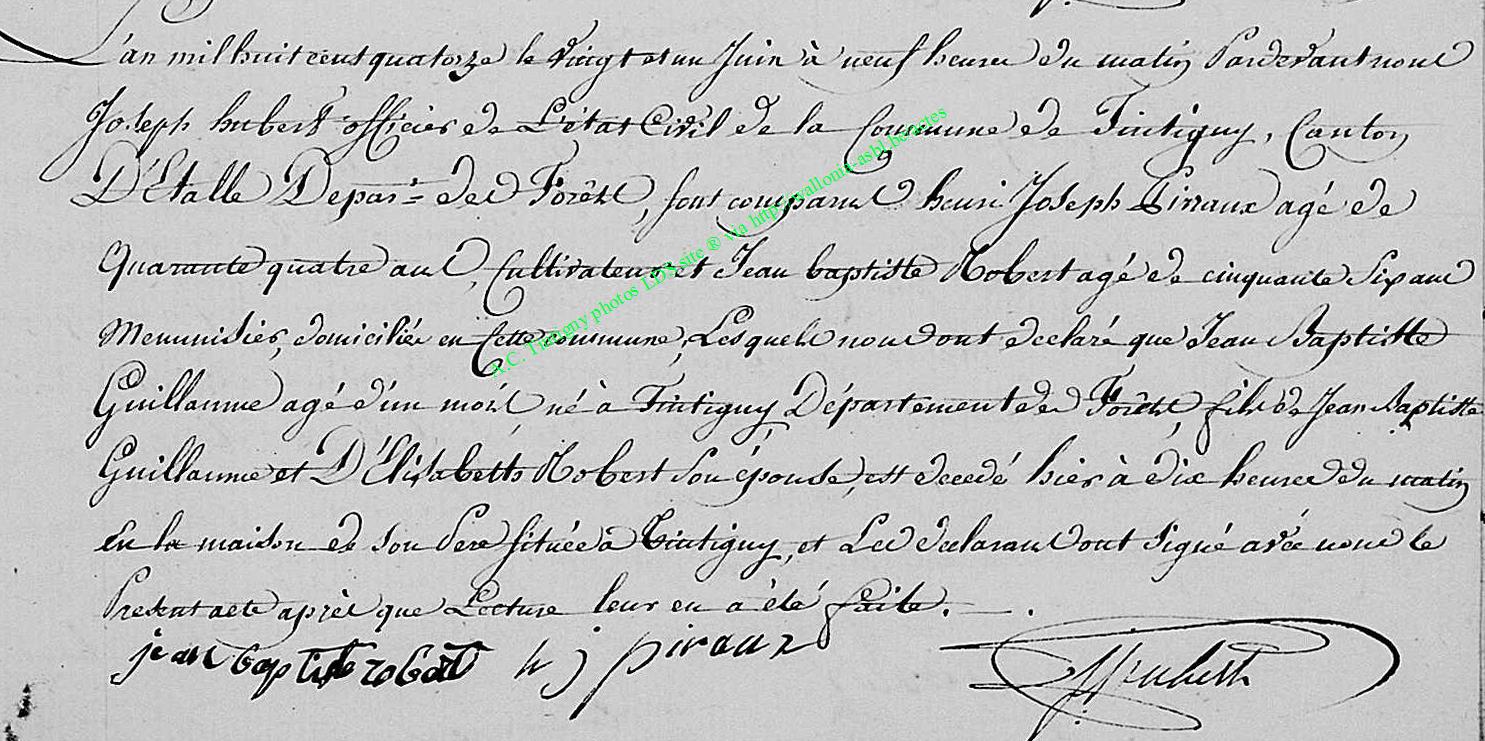 L'an mil huit cent quatorze le vingt et un Juin à neuf heures du matin Pardevant nous
Joseph hubert officier de L'état Civil de la Commune de Tintigny, Canton
D'Etalle Depar.t des Forêts, sont comparus henri Joseph Piraux agé de
Quarante quatre ans, Cultivateur et Jean baptiste Robert agé de cinquante Six ans
Menuisier, domiciliés en Cette commune, Lesquels nous ont declaré que Jean Baptiste
Guillaume agé d'un mois né à Tintigny Département des Forêts, fils de Jean Baptiste
Guillaume et D'Elisabeth Robert Son épouse, est decedé hier à dix heures du matin
En la maison de son Pere située à Tintigny, et Les declarans ont signé avec nous le
Present acte après que Lecture leur en a été faite.
jean baptiste robert h j piraux JHubert
A.C. Tintigny photos LDS site ® via http://wallonia-asbl.be/actes